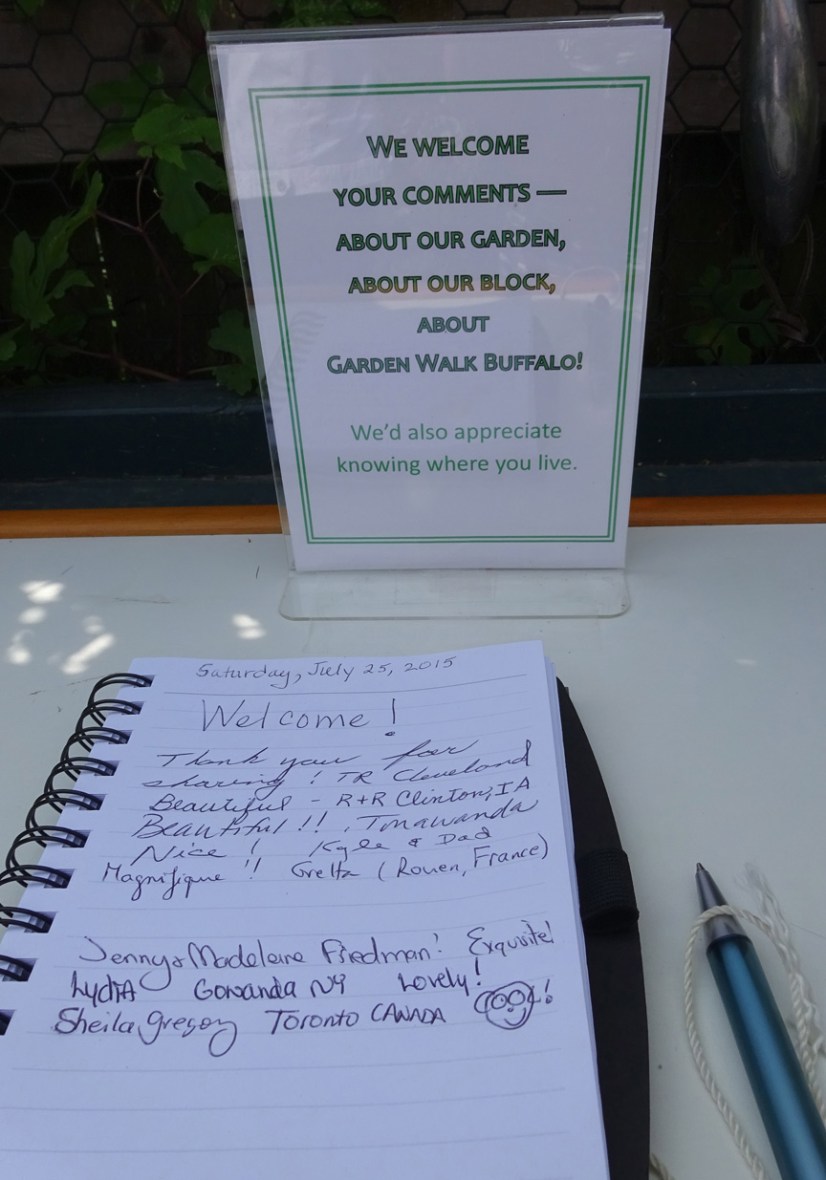 WE WELCOME
YOUR COMMENTS —
ABOUT OUR GARDEN,
ABOUT OUR BLOCK,
ABOUT
GARDEN WALK BUFFALO!
We'd also appreciate
knowing where you live.
Saturday, July 25, 2015
Welcome!
Thank you for
sharing! TR Cleveland
Beautiful - R+R Clinton, IA
Beautiful!! Tonawanda
Nice! Kyle & Dad
Magnifique!! (Rouen, France)
Jenny & Madeleine Friedman! Exquisite!
Lydia Gowanda NY Lovely!
Sheila Gregory Toronto CANADA Cool!